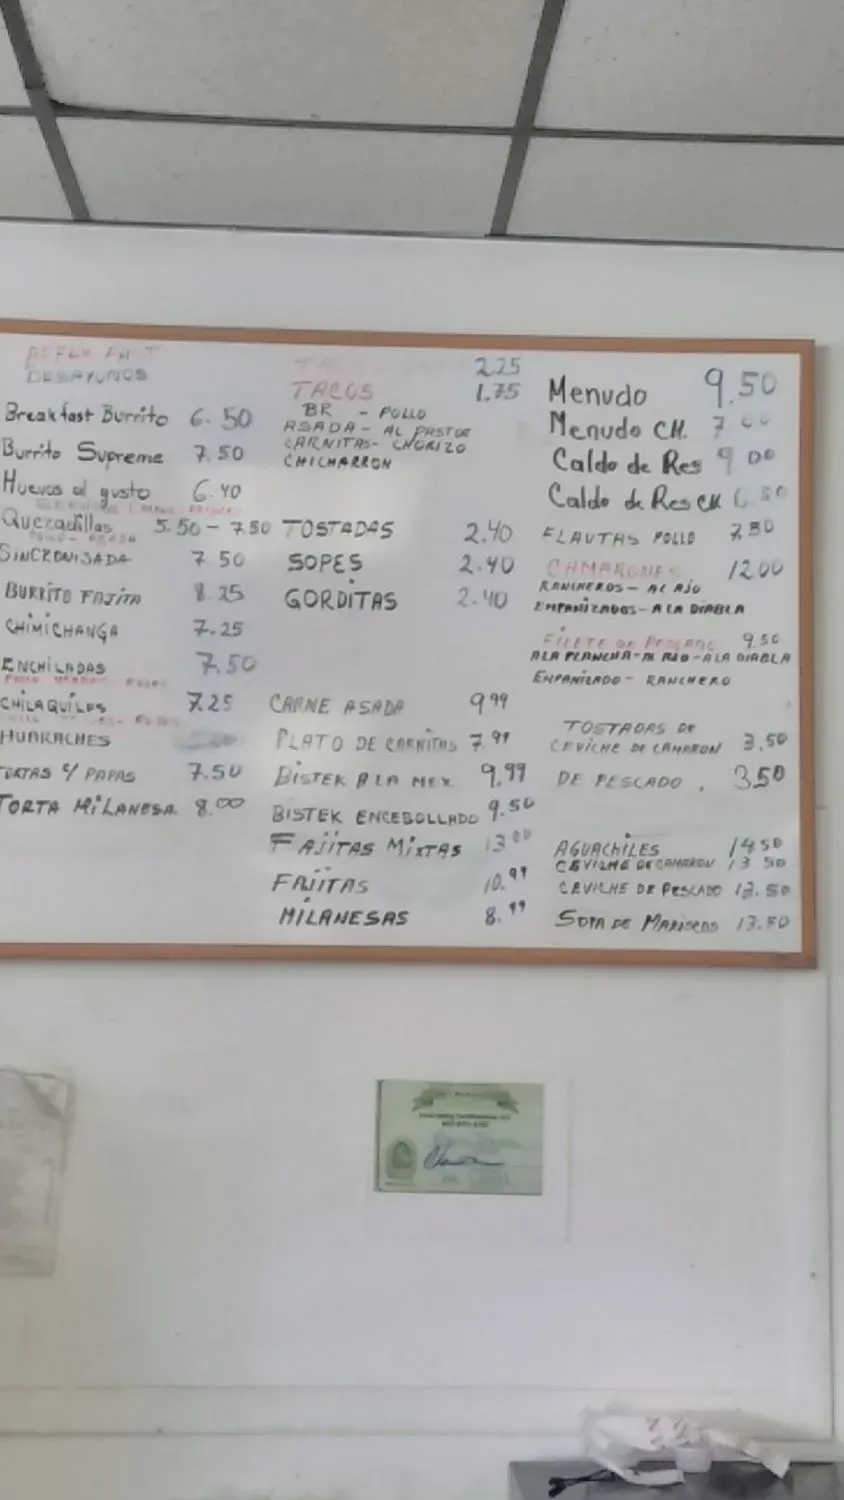 DESAYUNOS
Breakfast Burrito 6.50
Burrito Supreme 7.50
Huevos al gusto 6.40
Quezadillas 5.50 - 7.50
SINCRONISADA 7.50
BURRITO FAJITA 8.25
CHIMICHANGA 7.25
ENCHILADAS 7.50
CHILAQUILES 7.25
HUARACHES
TORTAS C/ PAPAS 7.50
TORTA MILANESA 8.00
2.25
TACOS 1.75
BR - POLLO
ASADA - AL PASTOR
CARNITAS - CHORIZO
CHICHARRON
TOSTADAS 2.40
SOPES 2.40
GORDITAS 2.40
CARNE ASADA 9.99
PLATO DE CARNITAS 7.99
BISTEK A LA MEX 9.99
BISTEK ENCEBOLLADO 9.50
FAJITAS MIXTAS 13.00
FAJITAS 10.99
MILANESAS 8.99
Menudo 9.50
Menudo CH. 7.00
Caldo de Res 9.00
Caldo de Res CH 6.50
FLAUTAS POLLO 7.50
CAMARONES 12.00
RANCHEROS - AL AJO
EMPANIZADOS - A LA DIABLA
FILETE DE PESCADO 9.50
A LA PLANCHA - AL AJO - A LA DIABLA
EMPANIZADO - RANCHERO
TOSTADAS DE
CEVICHE DE CAMARON 3.50
DE PESCADO . 3.50
AGUACHILES 14.50
CEVICHE DE CAMARON 13.50
CEVICHE DE PESCADO 13.50
SOPA DE MARISCOS 13.50